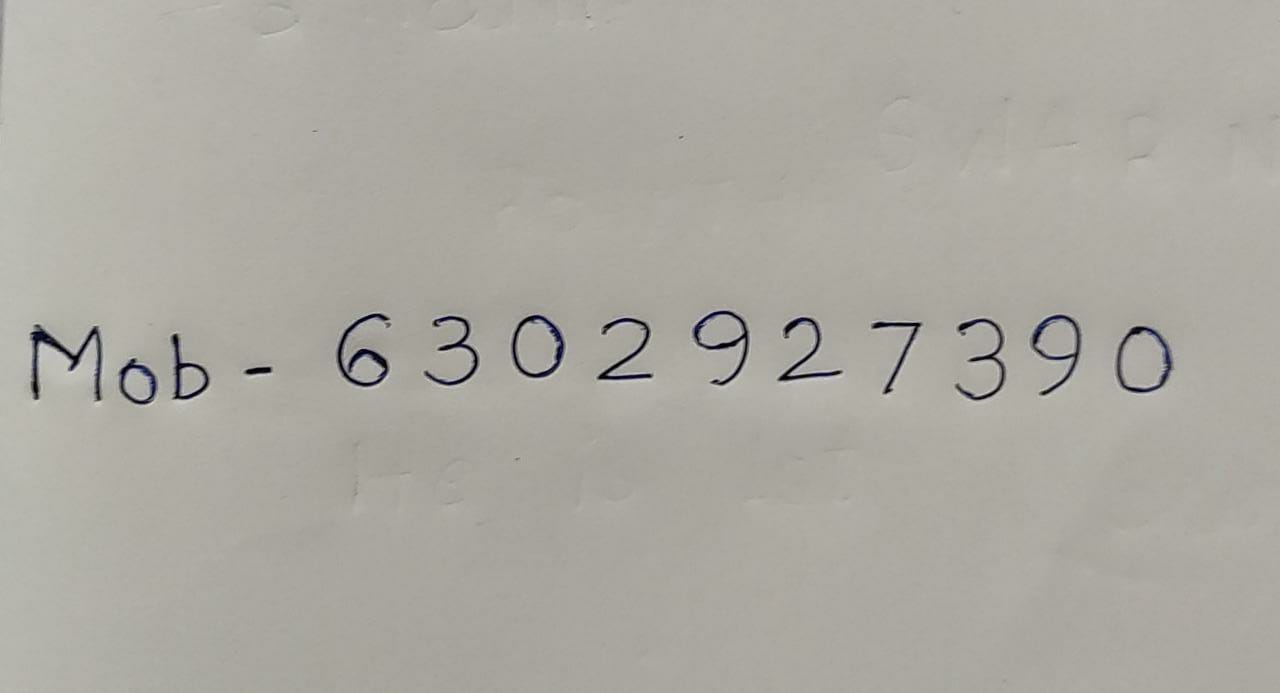 Mob - 6302927390